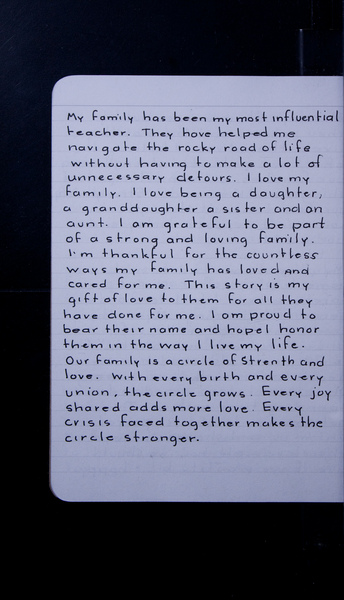 My family has been my most influential
teacher. They have helped me
navigate the rocky road of life
without having to make a lot of
unnecessary detours. I love my
family. I love being a daughter,
a granddaughter a sister and an
aunt. I am grateful to be part
of a strong and loving family.
I'm thankful for the countless
ways my family has loved and
cared for me. This story is my
gift of love to them for all they
have done for me. I am proud to
bear their name and hopeI honor
them in the way I live my life.
Our family is a circle of Strenth and
love. With every birth and every
union, the circle grows. Every joy
shared adds more love. Every
crisis faced together makes the
circle stronger.